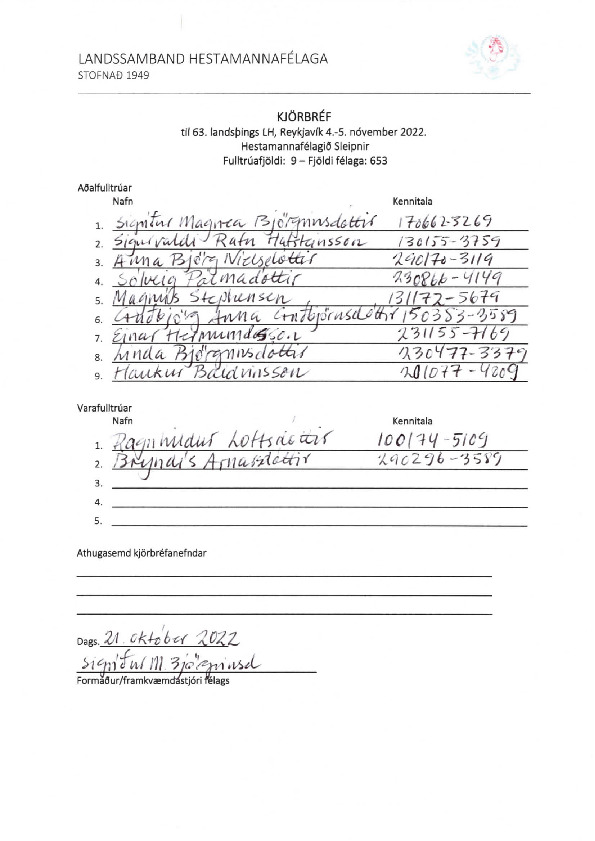 LANDSSAMBAND HESTAMANNAFÉLAGA
STOFNAÐ 1949
KJÖRBRÉF
til 63. landsþings LH, Reykjavík 4.-5. nóvember 2022.
Hestamannafélagið Sleipnir
Fulltrúafjöldi: 9 – Fjöldi félaga: 653
Aðalfulltrúar
Nafn Kennitala
1. Sigríður Magnea Björgvinsdóttir 170662-3269
2. Sigurvaldi Rafn Hafsteinsson 130155-3759
3. Anna Björg Níelsdóttir 290170-3119
4. Sólveig Pálmadóttir 230866-4149
5. Magnús Stephensen 131172-5679
6. Guðbjörg Anna Guðbjörnsdóttir 150383-3589
7. Einar Hermundsson 231155-7169
8. Linda Björgvinsdóttir 230477-3379
9. Haukur Baldvinsson 201077-4209
Varafulltrúar
Nafn Kennitala
1. Ragnhildur Loftsdóttir 100174-5109
2. Bryndís Arnarsdóttir 290296-3589
3.
4.
5.
Athugasemd kjörbréfanefndar
Dags. 21. október 2022
Sigríður M. Björgvinsd
Formaður/framkvæmdastjóri félags